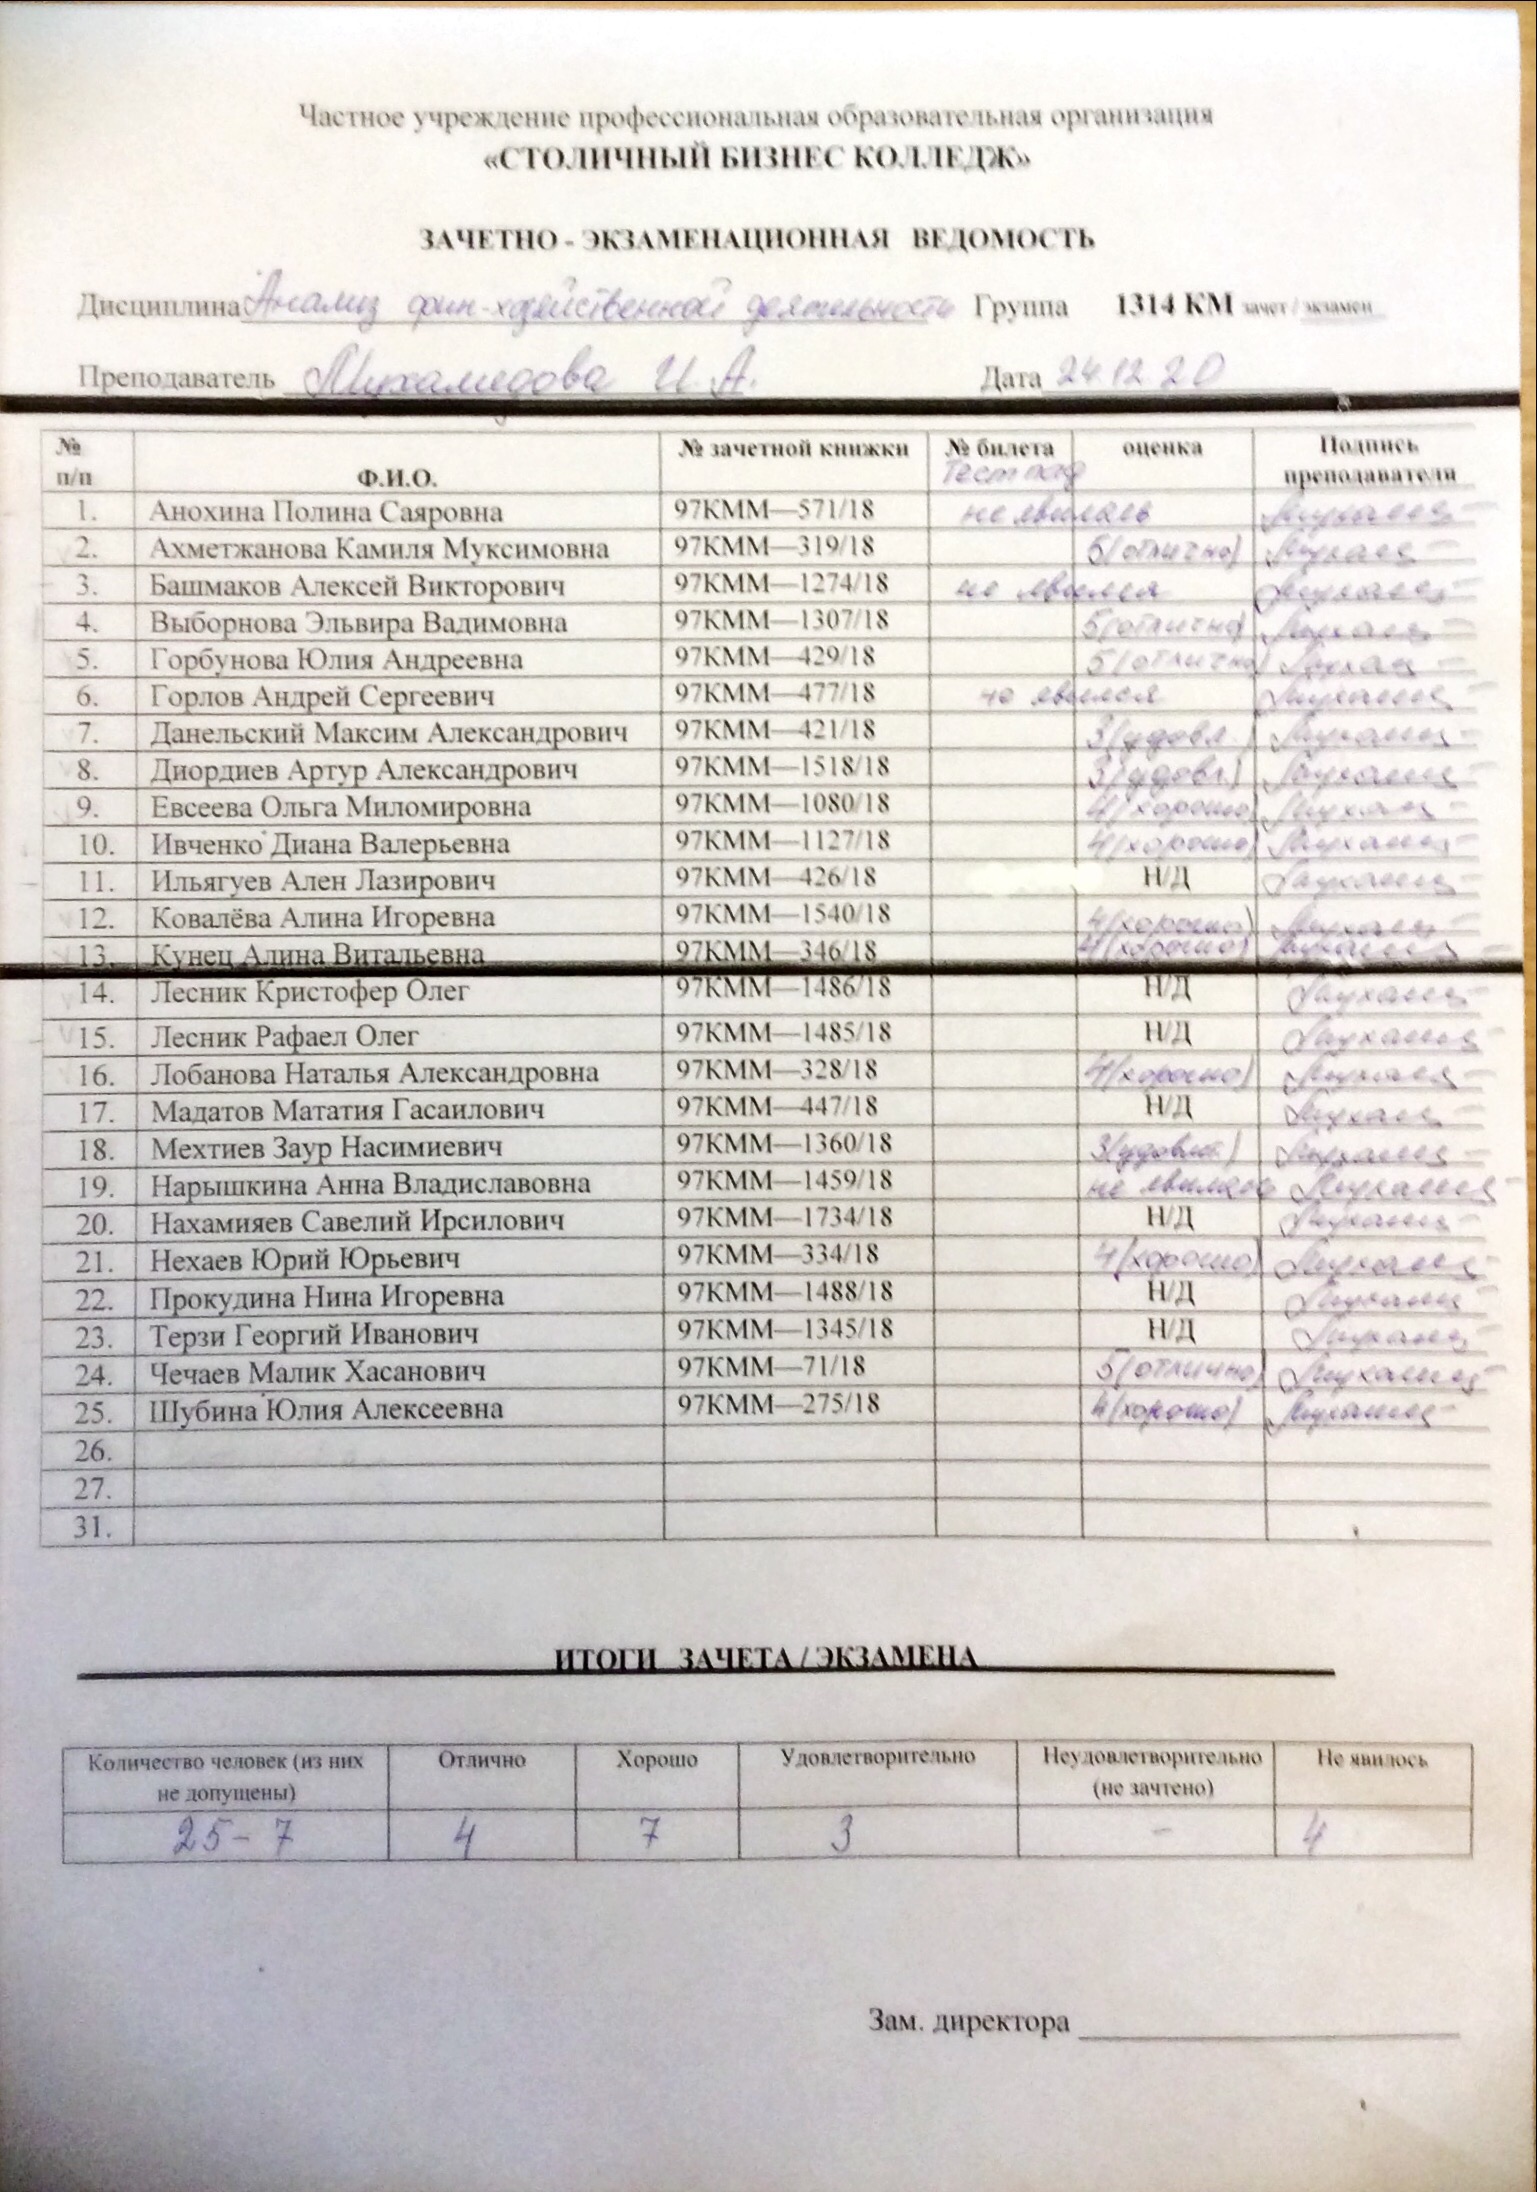 Частное учреждение профессиональная образовательная организация
«СТОЛИЧНЫЙ БИЗНЕС КОЛЛЕДЖ»
ЗАЧЕТНО - ЭКЗАМЕНАЦИОННАЯ ВЕДОМОСТЬ
Дисциплина Анализ фин-хозяйственной деятельность Группа 1314 КМ зачет / экзамен
Преподаватель Мухамедова И. А. Дата 24.12.20
№ п/п Ф.И.О. № зачетной книжки № билета оценка Подпись преподавателя
Тест
1. Анохина Полина Саяровна 97КММ—571/18 не явилась
2. Ахметжанова Камиля Муксимовна 97КММ—319/18 5(отлично)
3. Башмаков Алексей Викторович 97КММ—1274/18 не явился
4. Выборнова Эльвира Вадимовна 97КММ—1307/18 5(отлично)
5. Горбунова Юлия Андреевна 97КММ—429/18 5(отлично)
6. Горлов Андрей Сергеевич 97КММ—477/18 не явился
7. Данельский Максим Александрович 97КММ—421/18 3(удовл.)
8. Диордиев Артур Александрович 97КММ—1518/18 3(удовл.)
9. Евсеева Ольга Миломировна 97КММ—1080/18 4(хорошо)
10. Ивченко Диана Валерьевна 97КММ—1127/18 4(хорошо)
11. Ильягуев Ален Лазирович 97КММ—426/18 Н/Д
12. Ковалёва Алина Игоревна 97КММ—1540/18 4(хорошо)
13. Кунец Алина Витальевна 97КММ—346/18 4(хорошо)
14. Лесник Кристофер Олег 97КММ—1486/18 Н/Д
15. Лесник Рафаел Олег 97КММ—1485/18 Н/Д
16. Лобанова Наталья Александровна 97КММ—328/18 4(хорошо)
17. Мадатов Мататия Гасаилович 97КММ—447/18 Н/Д
18. Мехтиев Заур Насимиевич 97КММ—1360/18 3(удовл.)
19. Нарышкина Анна Владиславовна 97КММ—1459/18 не явилась
20. Нахамияев Савелий Ирсилович 97КММ—1734/18 Н/Д
21. Нехаев Юрий Юрьевич 97КММ—334/18 4(хорошо)
22. Прокудина Нина Игоревна 97КММ—1488/18 Н/Д
23. Терзи Георгий Иванович 97КММ—1345/18 Н/Д
24. Чечаев Малик Хасанович 97КММ—71/18 5(отлично)
25. Шубина Юлия Алексеевна 97КММ—275/18 4(хорошо)
26.
27.
31.
ИТОГИ ЗАЧЕТА / ЭКЗАМЕНА
Количество человек (из них не допущены) Отлично Хорошо Удовлетворительно Неудовлетворительно (не зачтено) Не явилось
25 - 7 4 7 3 - 4
Зам. директора